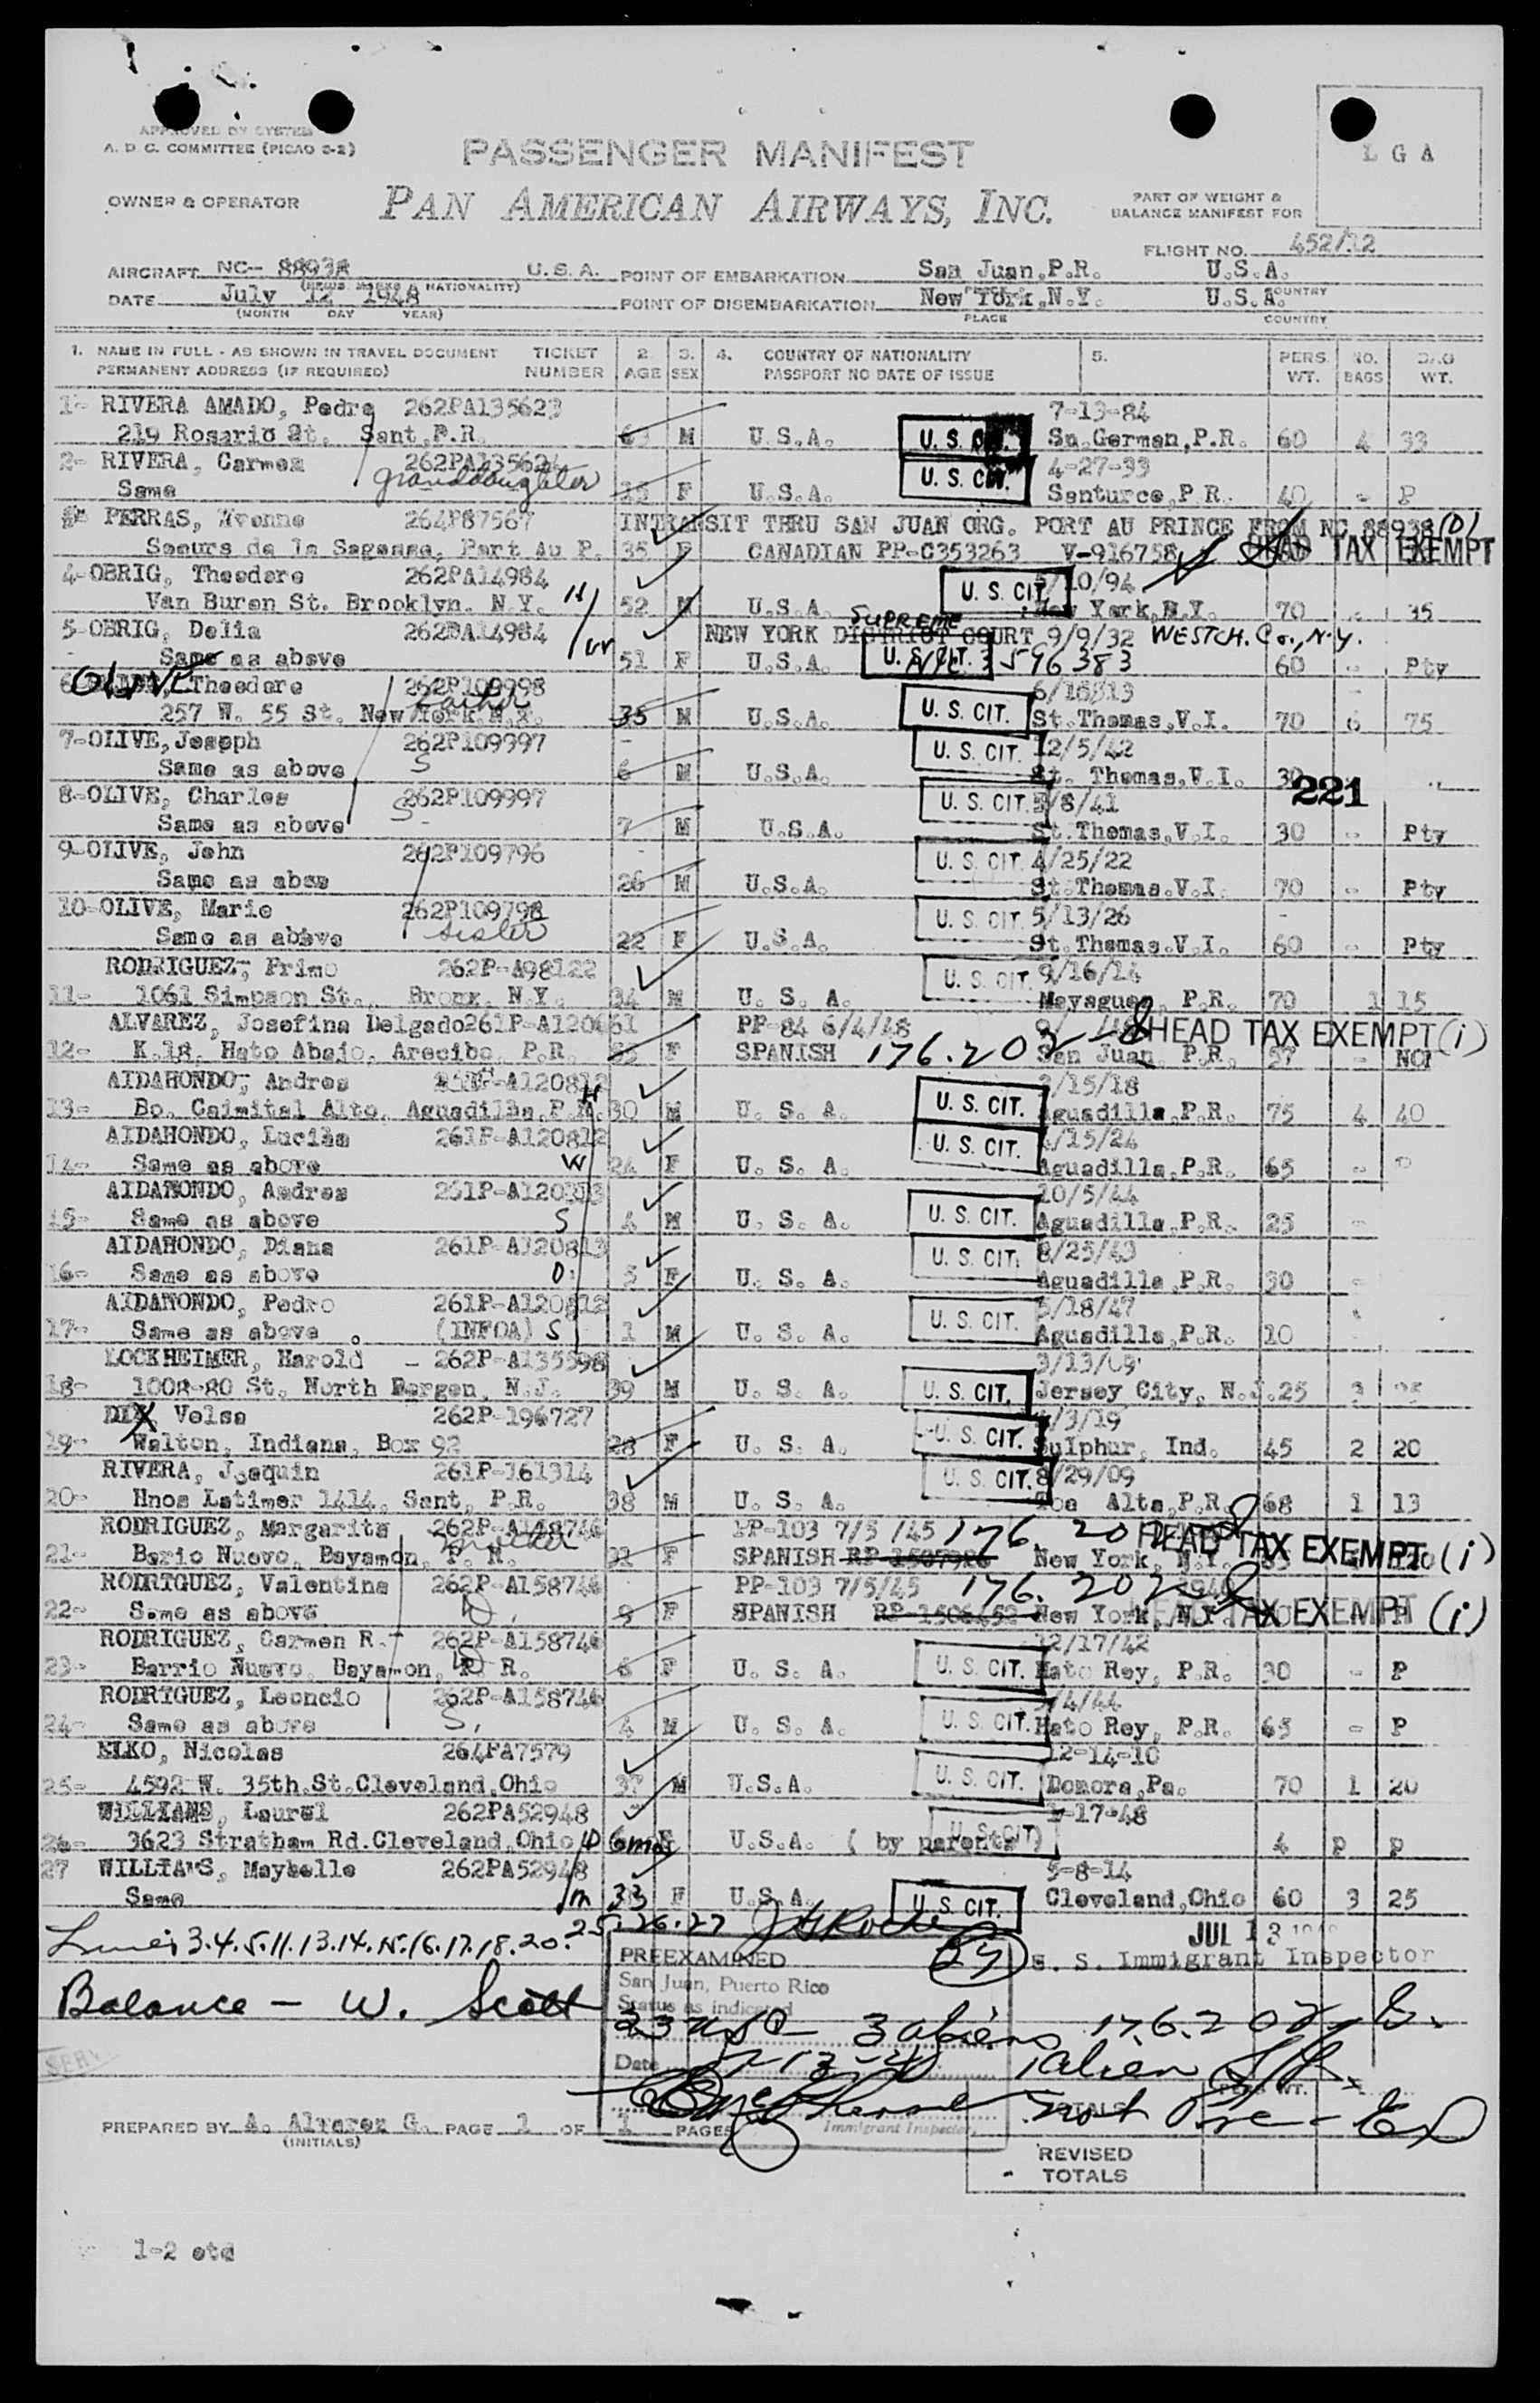 APPROVED BY SYSTEM
A. D C. COMMITTEE (PICAO 2-2)
L G A
PASSENGER MANIFEST
OWNER & OPERATOR
PAN AMERICAN AIRWAYS, INC.
PART OF WEIGHT &
BALANCE MANIFEST FOR
FLIGHT NO. 452/12
AIRCRAFT NC- 88938 U.S.A. POINT OF EMBARKATION San Juan, P.R. U.S.A.
(NEWS MARKS & NATIONALITY) PLACE COUNTRY
DATE July 12 1948 POINT OF DISEMBARKATION New York, N.Y. U.S.A.
(MONTH DAY YEAR) PLACE COUNTRY
1. NAME IN FULL - AS SHOWN IN TRAVEL DOCUMENT TICKET 2. 3. 4. COUNTRY OF NATIONALITY 5. PERS NO. BAG
PERMANENT ADDRESS (IF REQUIRED) NUMBER AGE SEX PASSPORT NO DATE OF ISSUE WT. BAGS WT.
1- RIVERA AMADO, Pedro 262PA135623 7-13-84
219 Rosario St. Sant, P.R. 63 M U.S.A. U.S. CIT. Sn. German, P.R. 60 4 33
2- RIVERA, Carmen 262PA135624 4-27-33
Same granddaughter 15 F U.S.A. U.S. CIT. Santurce, P.R. 40 - P
PERRAS, Yvonne 264P87567 INTRANSIT THRU SAN JUAN ORG. PORT AU PRINCE FROM NC 88938 (D)
Soeurs de la Sagesse, Port Au P. 35 F CANADIAN PP-C353263 V-916758 HEAD TAX EXEMPT
4-OBRIG, Theodore 262PA14984 /10/94
Van Buren St. Brooklyn. N.Y. H 52 M U.S.A. U.S. CIT. New York, N.Y. 70 - 35
5-OBRIG, Delia 262PA14984 W NEW YORK DISTRICT SUPREME COURT 9/9/32 WESTCH. Co., N.Y.
Same as above 51 F U.S.A. U.S. CIT. 3596383 60 - Pty
6- OLIVE, Theodore 262P109998
257 W. 55 St. New York, N.Y. 35 M U.S.A. U.S. CIT. St. Thomas, V.I. 70 6 75
7-OLIVE, Joseph 262P109997 12/5/42
Same as above S 6 M U.S.A. U.S. CIT. St. Thomas, V.I. 30
221
8-OLIVE, Charles 262P109997 /8/41
Same as above S 7 M U.S.A. U.S. CIT. St. Thomas, V.I. 30 - Pty
9-OLIVE, John 262P109796 4/25/22
Same as above 26 M U.S.A. U.S. CIT. St. Thomas, V.I. 70 - Pty
10-OLIVE, Marie 262P109798 5/13/26
Same as above sister 22 F U.S.A. U.S. CIT. St. Thomas, V.I. 60 - Pty
RODRIGUEZ, Primo 262P-A98122 9/16/14
11- 1061 Simpson St., Bronx, N.Y. 34 M U. S. A. U.S. CIT. Mayaguez, P.R. 70 1 15
ALVAREZ, Josefina Delgado 261P-A120661 PP-84 6/4/48 HEAD TAX EXEMPT (i)
12- K.18, Hato Abajo, Arecibo, P.R. F SPANISH 176.202 San Juan, P.R. 57 - NO
AIDAHONDO, Andres A120812 /15/18
13- Bo. Caimital Alto, Aguadilla, P.R. H 30 M U. S. A. U.S. CIT. Aguadilla, P.R. 75 4 40
AIDAHONDO, Lucila 261P-A120812 /15/24
14- Same as above W 24 F U. S. A. U.S. CIT. Aguadilla, P.R. 65 -
AIDAHONDO, Andres 261P-A120813 10/5/44
15- Same as above S 4 M U. S. A. U.S. CIT. Aguadilla, P.R. 25 -
AIDAHONDO, Diana 261P-A120813 8/25/43
16- Same as above D 5 F U. S. A. U.S. CIT. Aguadilla, P.R. 30 -
AIDAHONDO, Pedro 261P-A120812 5/18/47
17- Same as above (INFOA) S 1 M U. S. A. U.S. CIT. Aguadilla, P.R. 10
LOCKHEIMER, Harold - 262P-A135598 3/13/09
18- 1008-80 St. North Bergen, N.J. 39 M U. S. A. U.S. CIT. Jersey City, N.J. 25
DIX, Velsa 262P-196727 /3/19
19- Walton, Indiana, Box 92 28 F U. S. A. U.S. CIT. Sulphur, Ind. 45 2 20
RIVERA, Joaquin 261P-161314 8/29/09
20- Hnos Latimer 1414, Sant, P.R. 38 M U. S. A. U.S. CIT. Toa Alta, P.R. 68 1 13
RODRIGUEZ, Margarita 262P-A158746 PP-103 7/5/45 176.202
21- Bario Nuevo, Bayamon, P. R. mother 31 F SPANISH New York, N.Y. HEAD TAX EXEMPT (i)
RODRIGUEZ, Valentina 262P-A158746 PP-103 7/5/45 176.202
22- Same as above D 9 F SPANISH RP-1506452 New York, N.Y. HEAD TAX EXEMPT (i)
RODRIGUEZ, Carmen R. 262P-A158746 12/17/42
23- Barrio Nuevo, Bayamon, P. R. D 6 F U. S. A. U.S. CIT. Hato Rey, P.R. 30 - P
RODRIGUEZ, Leoncio 262P-A158746 /4/44
24- Same as above S. 4 M U. S. A. U.S. CIT. Hato Rey, P.R. 65 - P
ELKO, Nicolas 264PA7579 12-14-10
25- 4592 W. 35th.St.Cleveland, Ohio 37 M U.S.A. U.S. CIT. Donora, Pa. 70 1 20
WILLIAMS, Laurel 262PA52948 -17-48
26- 3623 Stratham Rd.Cleveland, Ohio D 6mos F U.S.A. ( by parents ) U.S. CIT. 4 P P
27 WILLIAMS, Maybelle 262PA52948 5-8-14
Same m 33 F U.S.A. U.S. CIT. Cleveland, Ohio 60 3 25
Lines 3.4.5.11.13.14.15.16.17.18.20. 25.26.27 JUL 13 1948
PREEXAMINED U. S. Immigrant Inspector
San Juan, Puerto Rico
Balance - W. Scott
Status as indicated
23 USC 3 aliens 176.202
Date 7-13-48 1 alien
not Pre-Ex
PREPARED BY A. Alvarez G. PAGE 1 OF 1 PAGES Immigrant Inspector
(INITIALS)
TOTALS
REVISED
TOTALS
1-2 otd